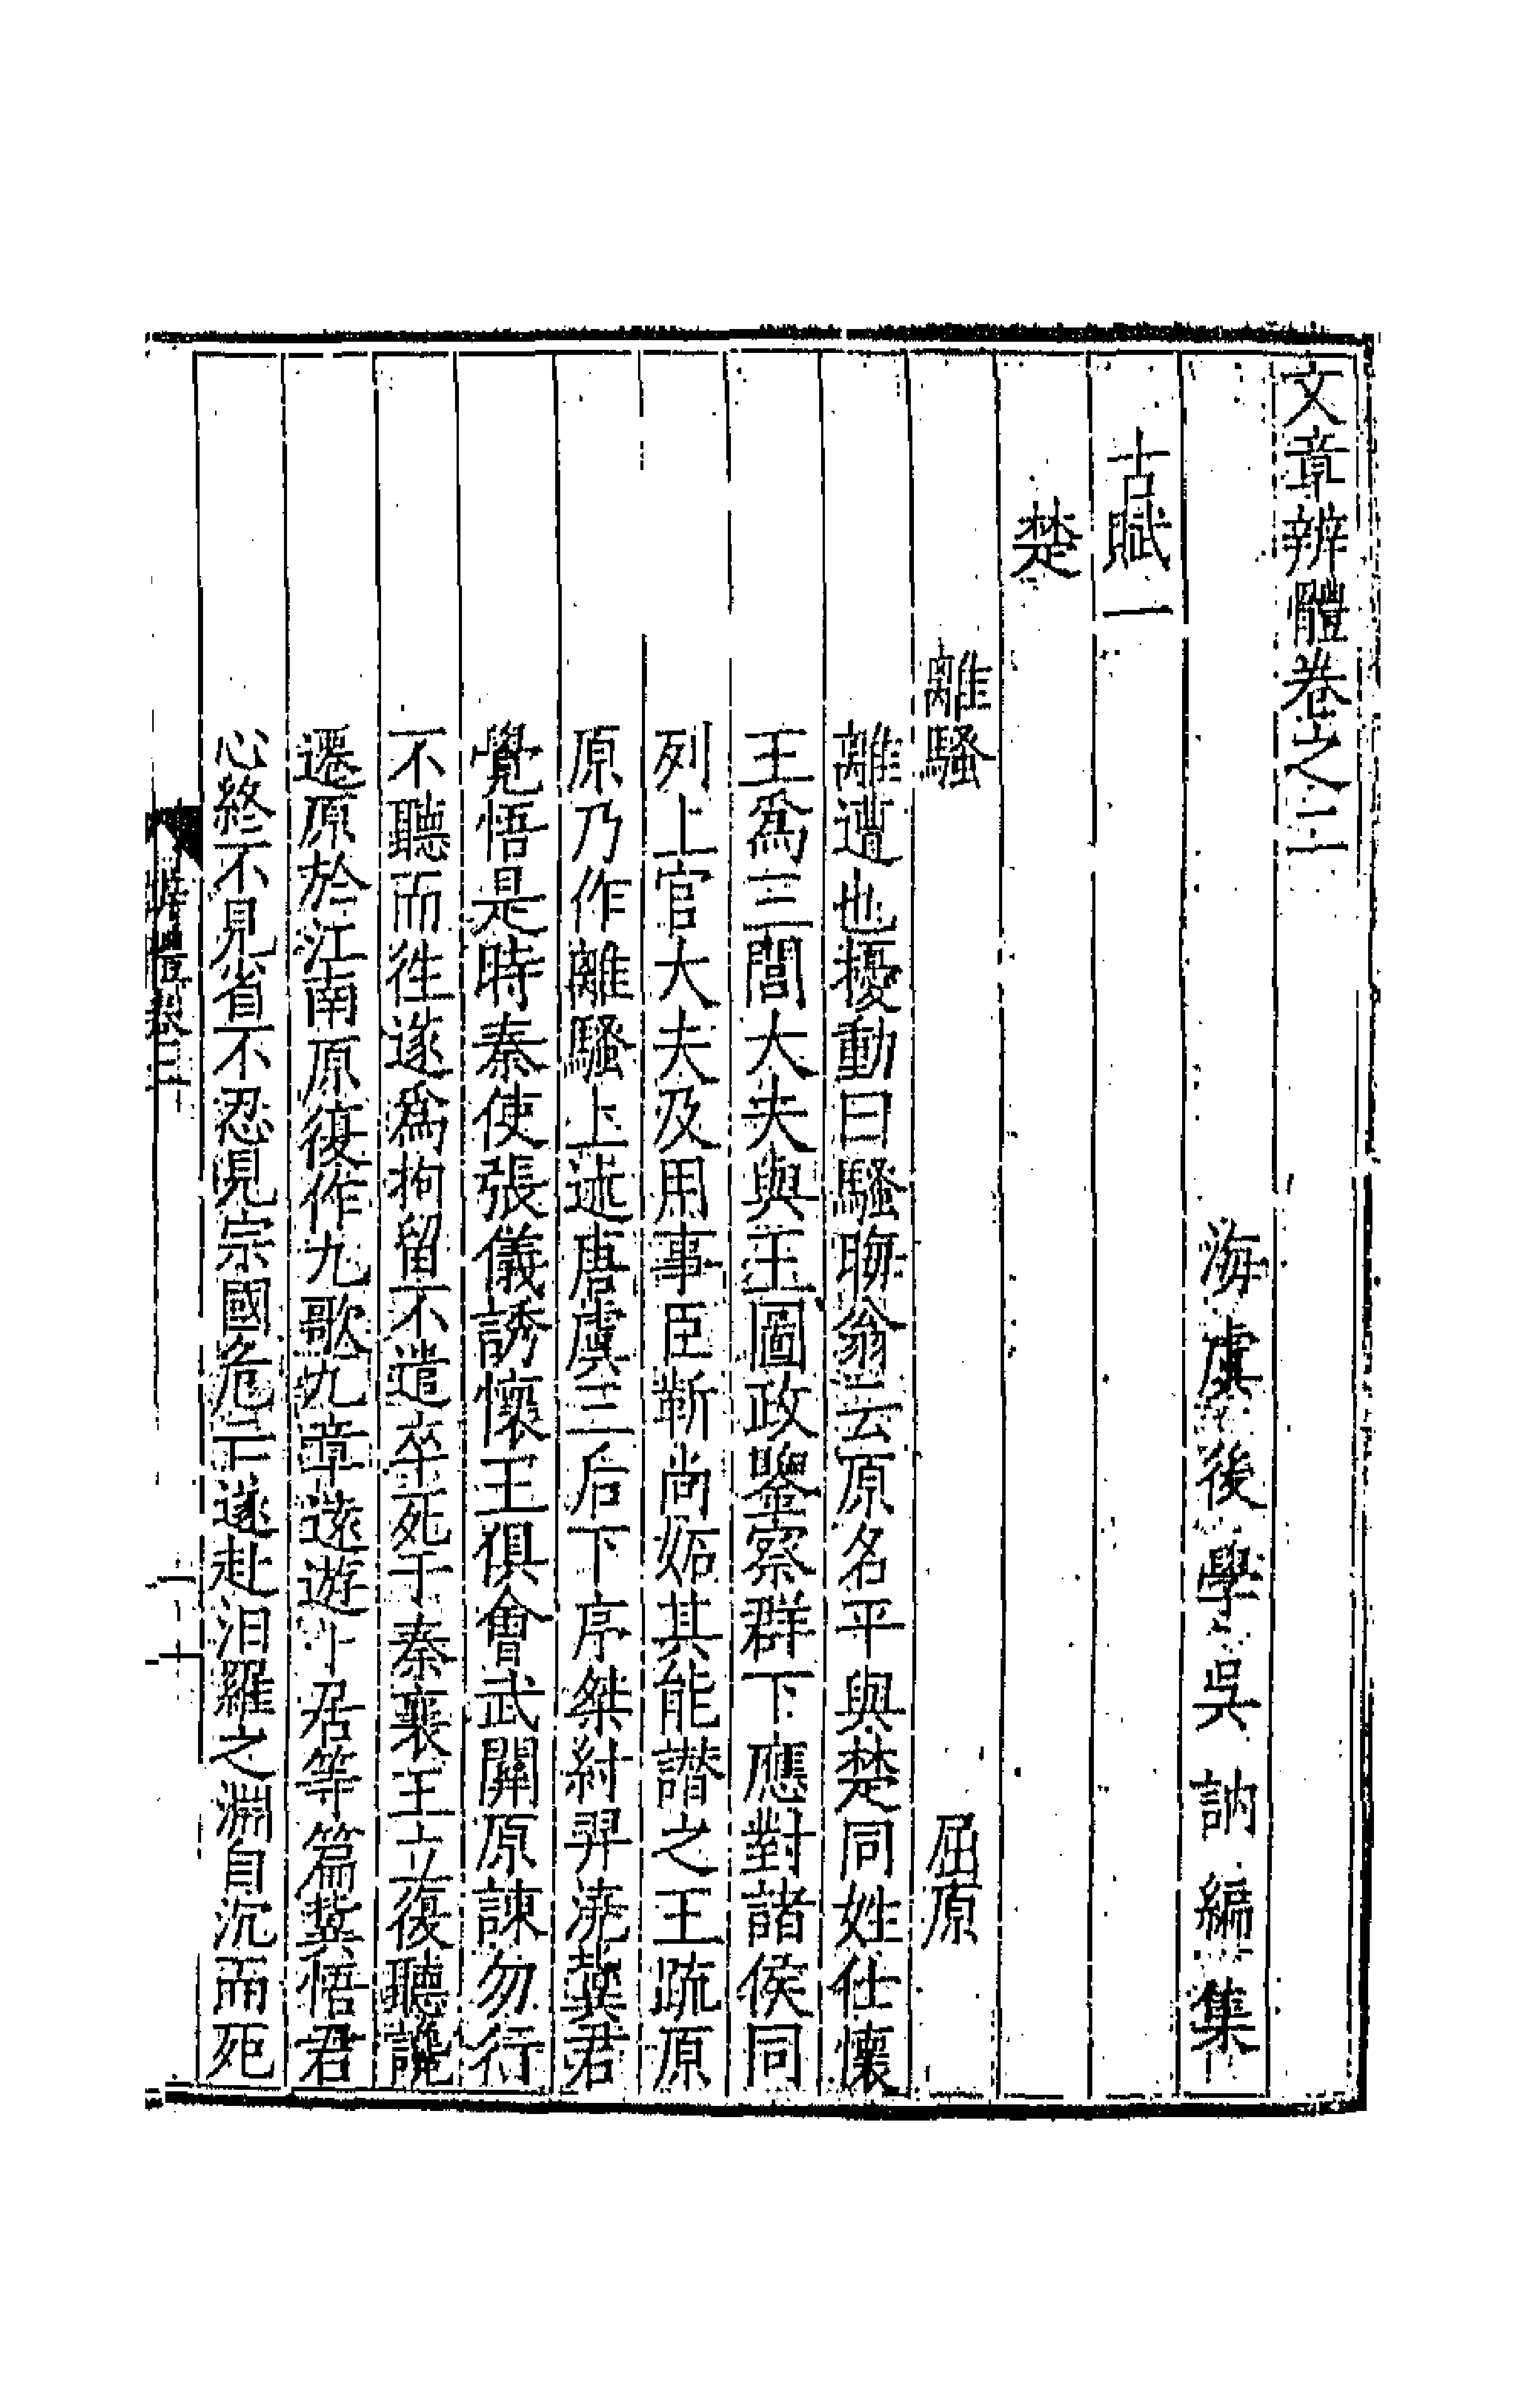 文章辨體卷之二
海虞後學吳訥編集
古賦一
楚
離騷　屈原
離遭也擾動曰騷晦翁云原名平與楚同姓仕懷
王為三閭大夫與王圖政鑒察群下應對諸侯同
列上官大夫及用事臣靳尚妬其能譖之王疏原
原乃作離騷上述唐虞三后下序桀紂羿澆冀君
覺悟是時秦使張儀誘懷王俱會武關原諫勿行
不聽而徃遂為拘留不遣卒死于秦襄王立復聽讒
遷原於江南原復作九歌九章遠遊卜居等篇冀悟君
心終不見省不忍見宗國危亡遂赴汨羅之淵自沉而死